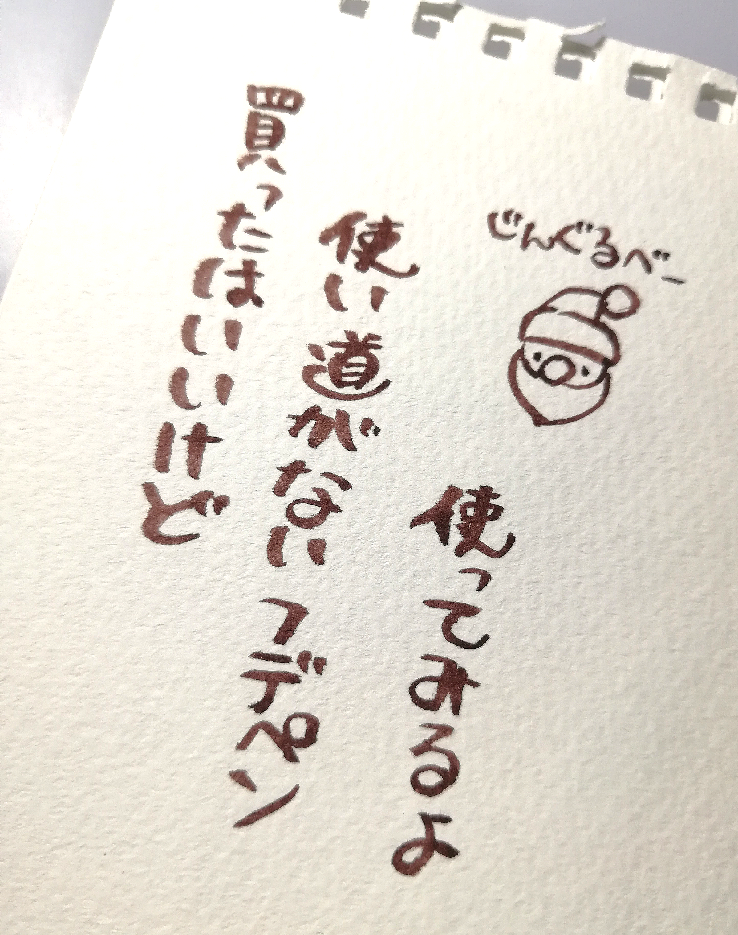 買ったはいいけど
使い道がない フデペン
使ってみるよ
じんぐるべー